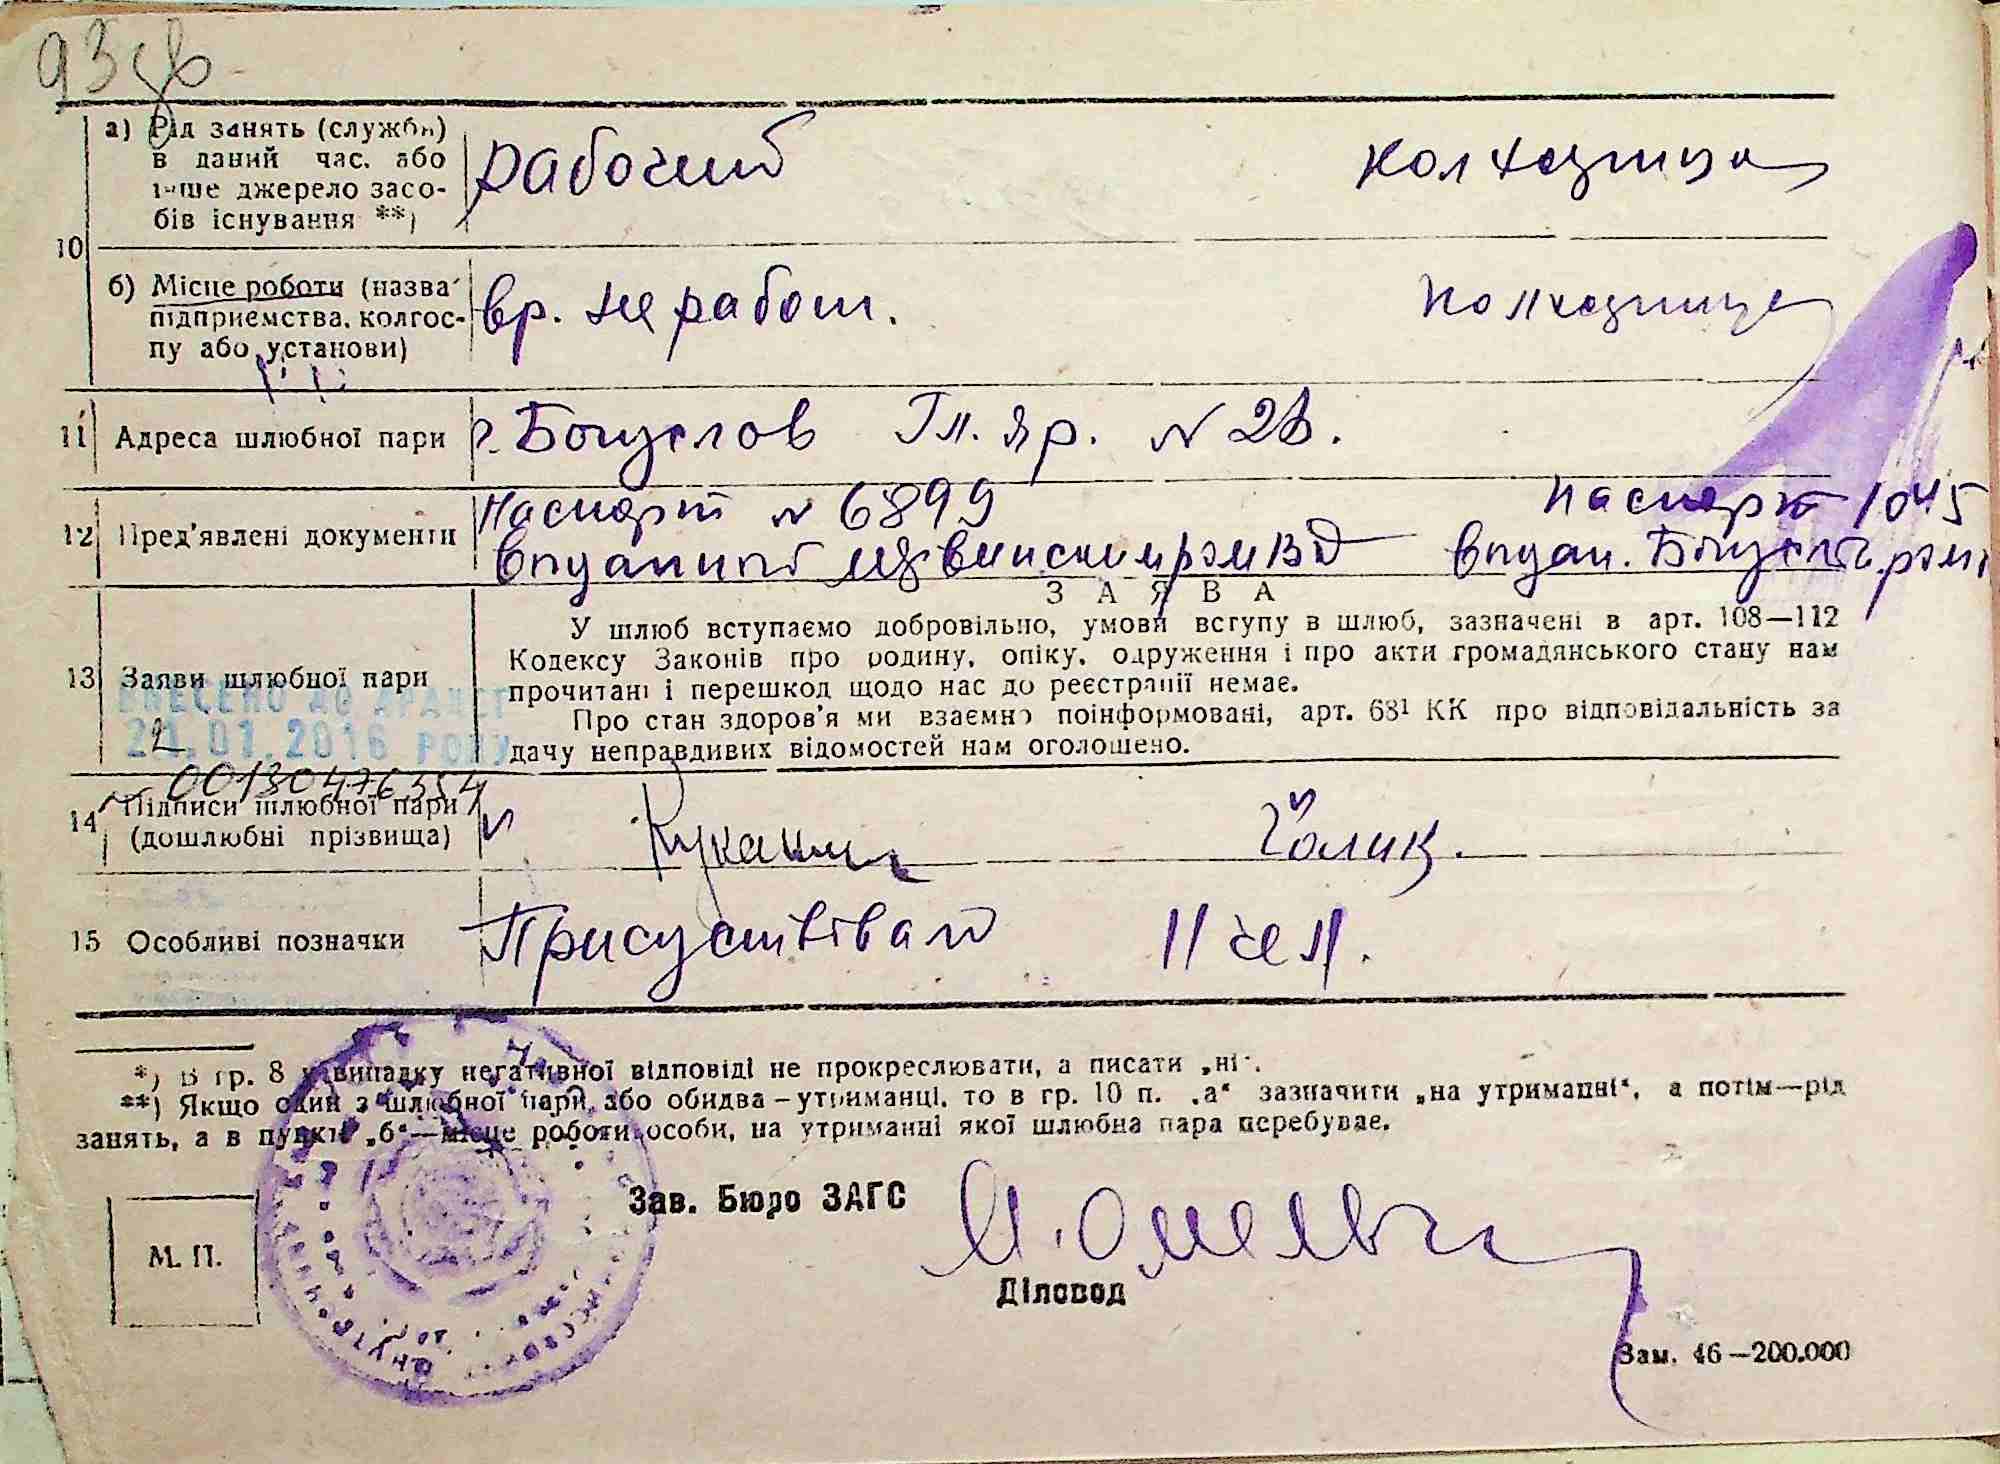 93
а) Рід занять (служби) в даний час, або інше джерело засобів існування **)
рабочий
колхозница
10
б) Місце роботи (назва підприємства, колгоспу або установи)
вр. не работ.
колхозница
11 Адреса шлюбної пари
г. Богуслов Гл. яр. N 28.
12 Пред'явлені документи
Паспорт N 6899
Паспорт 1045
З А Я В А
13 Заяви шлюбної пари
У шлюб вступаємо добровільно, умови вступу в шлюб, зазначені в арт. 108—112
Кодексу Законів про родину, опіку, одруження і про акти громадянського стану нам
прочитані і перешкод щодо нас до реєстрації немає.
Про стан здоров'я ми взаємно поінформовані, арт. 68¹ КК про відповідальність за
дачу неправдивих відомостей нам оголошено.
ВНЕСЕНО ДО ДРАЦСГ
01.2016 РОКУ
00130476354
14 Підписи шлюбної пари
(дошлюбні прізвища)
15 Особливі позначки
Присуствівало 11 чел.
*) В гр. 8 у випадку негативної відповіді не прокреслювати, а писати „ні".
**) Якщо один з шлюбної пари, або обидва – утриманці, то в гр. 10 п. „а" зазначити „на утриманні", а потім—рід
занять, а в пункті „б"—місце роботи особи, на утриманні якої шлюбна пара перебуває.
Зав. Бюро ЗАГС
М. П.
Діловод
Зам. 46—200.000